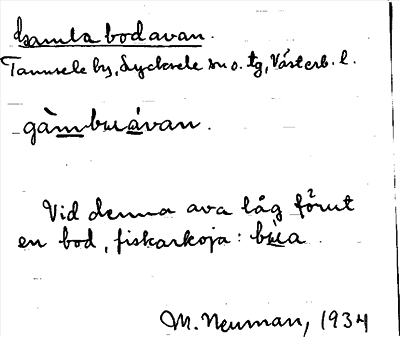 Gamla bodavan.
Tannsele by, Lycksele sn o. tg, Västerb. l.
gàmbuávan.
Vid denna ava låg förut
en bod, fiskarkoja: bùa.
M. Neuman, 1934